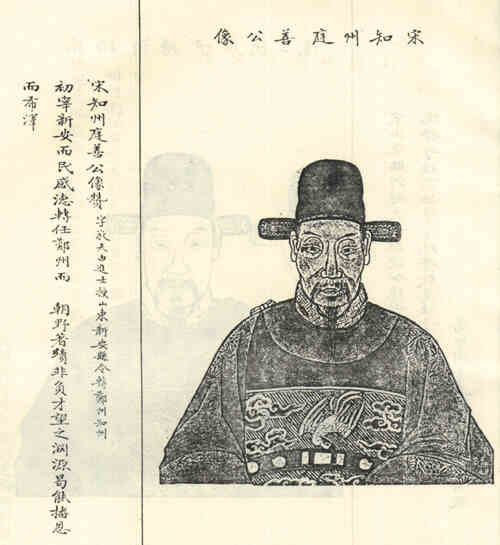 宋知州庭善公像
宋知州庭善公像贊 字 由進士授山東新安縣令轉鄭州知州
初宰新安而民感德轉任鄭州而 朝野著績非負才望之淵源曷能播恩
而希澤